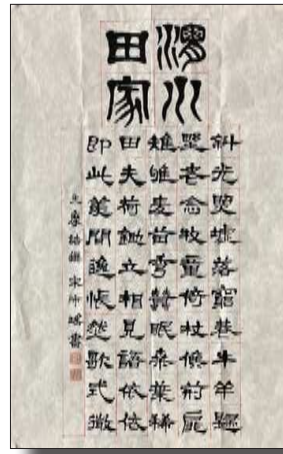 渭川
田家
斜光照墟落窮巷牛羊歸
野老念牧童倚杖候荊扉
雉雊麥苗秀蠶眠桑葉稀
田夫荷鋤立相見語依依
即此羨閒逸悵然歌式微
摩詰 宋 書